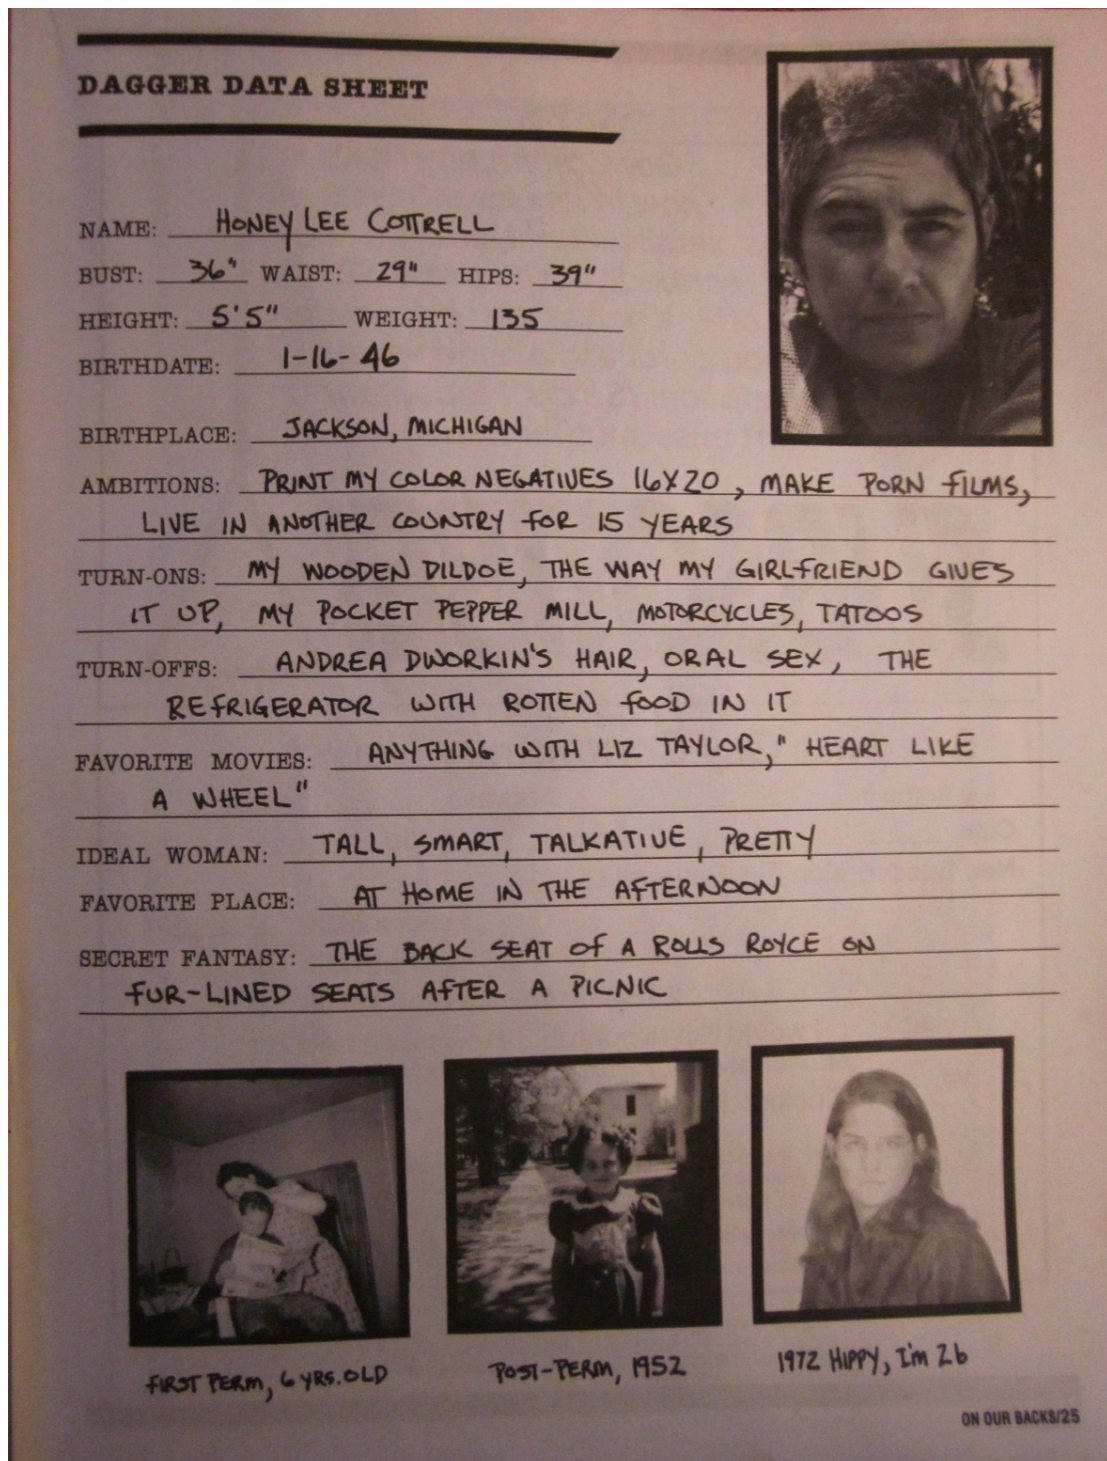 DAGGER DATA SHEET
NAME: HONEY LEE COTTRELL
BUST: 36" WAIST: 29" HIPS: 39"
HEIGHT: 5'5" WEIGHT: 135
BIRTHDATE: 1-16-46
BIRTHPLACE: JACKSON, MICHIGAN
AMBITIONS: PRINT MY COLOR NEGATIVES 16X20, MAKE PORN FILMS,
LIVE IN ANOTHER COUNTRY FOR 15 YEARS
TURN-ONS: MY WOODEN DILDOE, THE WAY MY GIRLFRIEND GIVES
IT UP, MY POCKET PEPPER MILL, MOTORCYCLES, TATOOS
TURN-OFFS: ANDREA DWORKIN'S HAIR, ORAL SEX, THE
REFRIGERATOR WITH ROTTEN FOOD IN IT
FAVORITE MOVIES: ANYTHING WITH LIZ TAYLOR, "HEART LIKE
A WHEEL"
IDEAL WOMAN: TALL, SMART, TALKATIVE, PRETTY
FAVORITE PLACE: AT HOME IN THE AFTERNOON
SECRET FANTASY: THE BACK SEAT OF A ROLLS ROYCE ON
FUR-LINED SEATS AFTER A PICNIC
FIRST PERM, 6 YRS. OLD
POST-PERM, 1952
1972 HIPPY, I'm 26
ON OUR BACKS/25